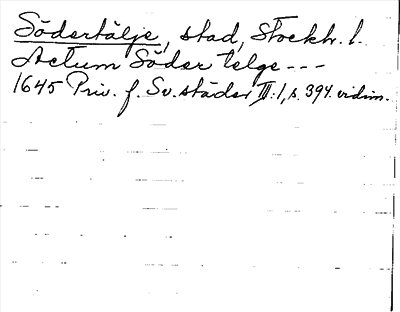 Södertälje, stad, Stockh. l.
Actum Söder Telge ---
1645 Priv. f. Sv. städer III:1, s. 394. vidim.